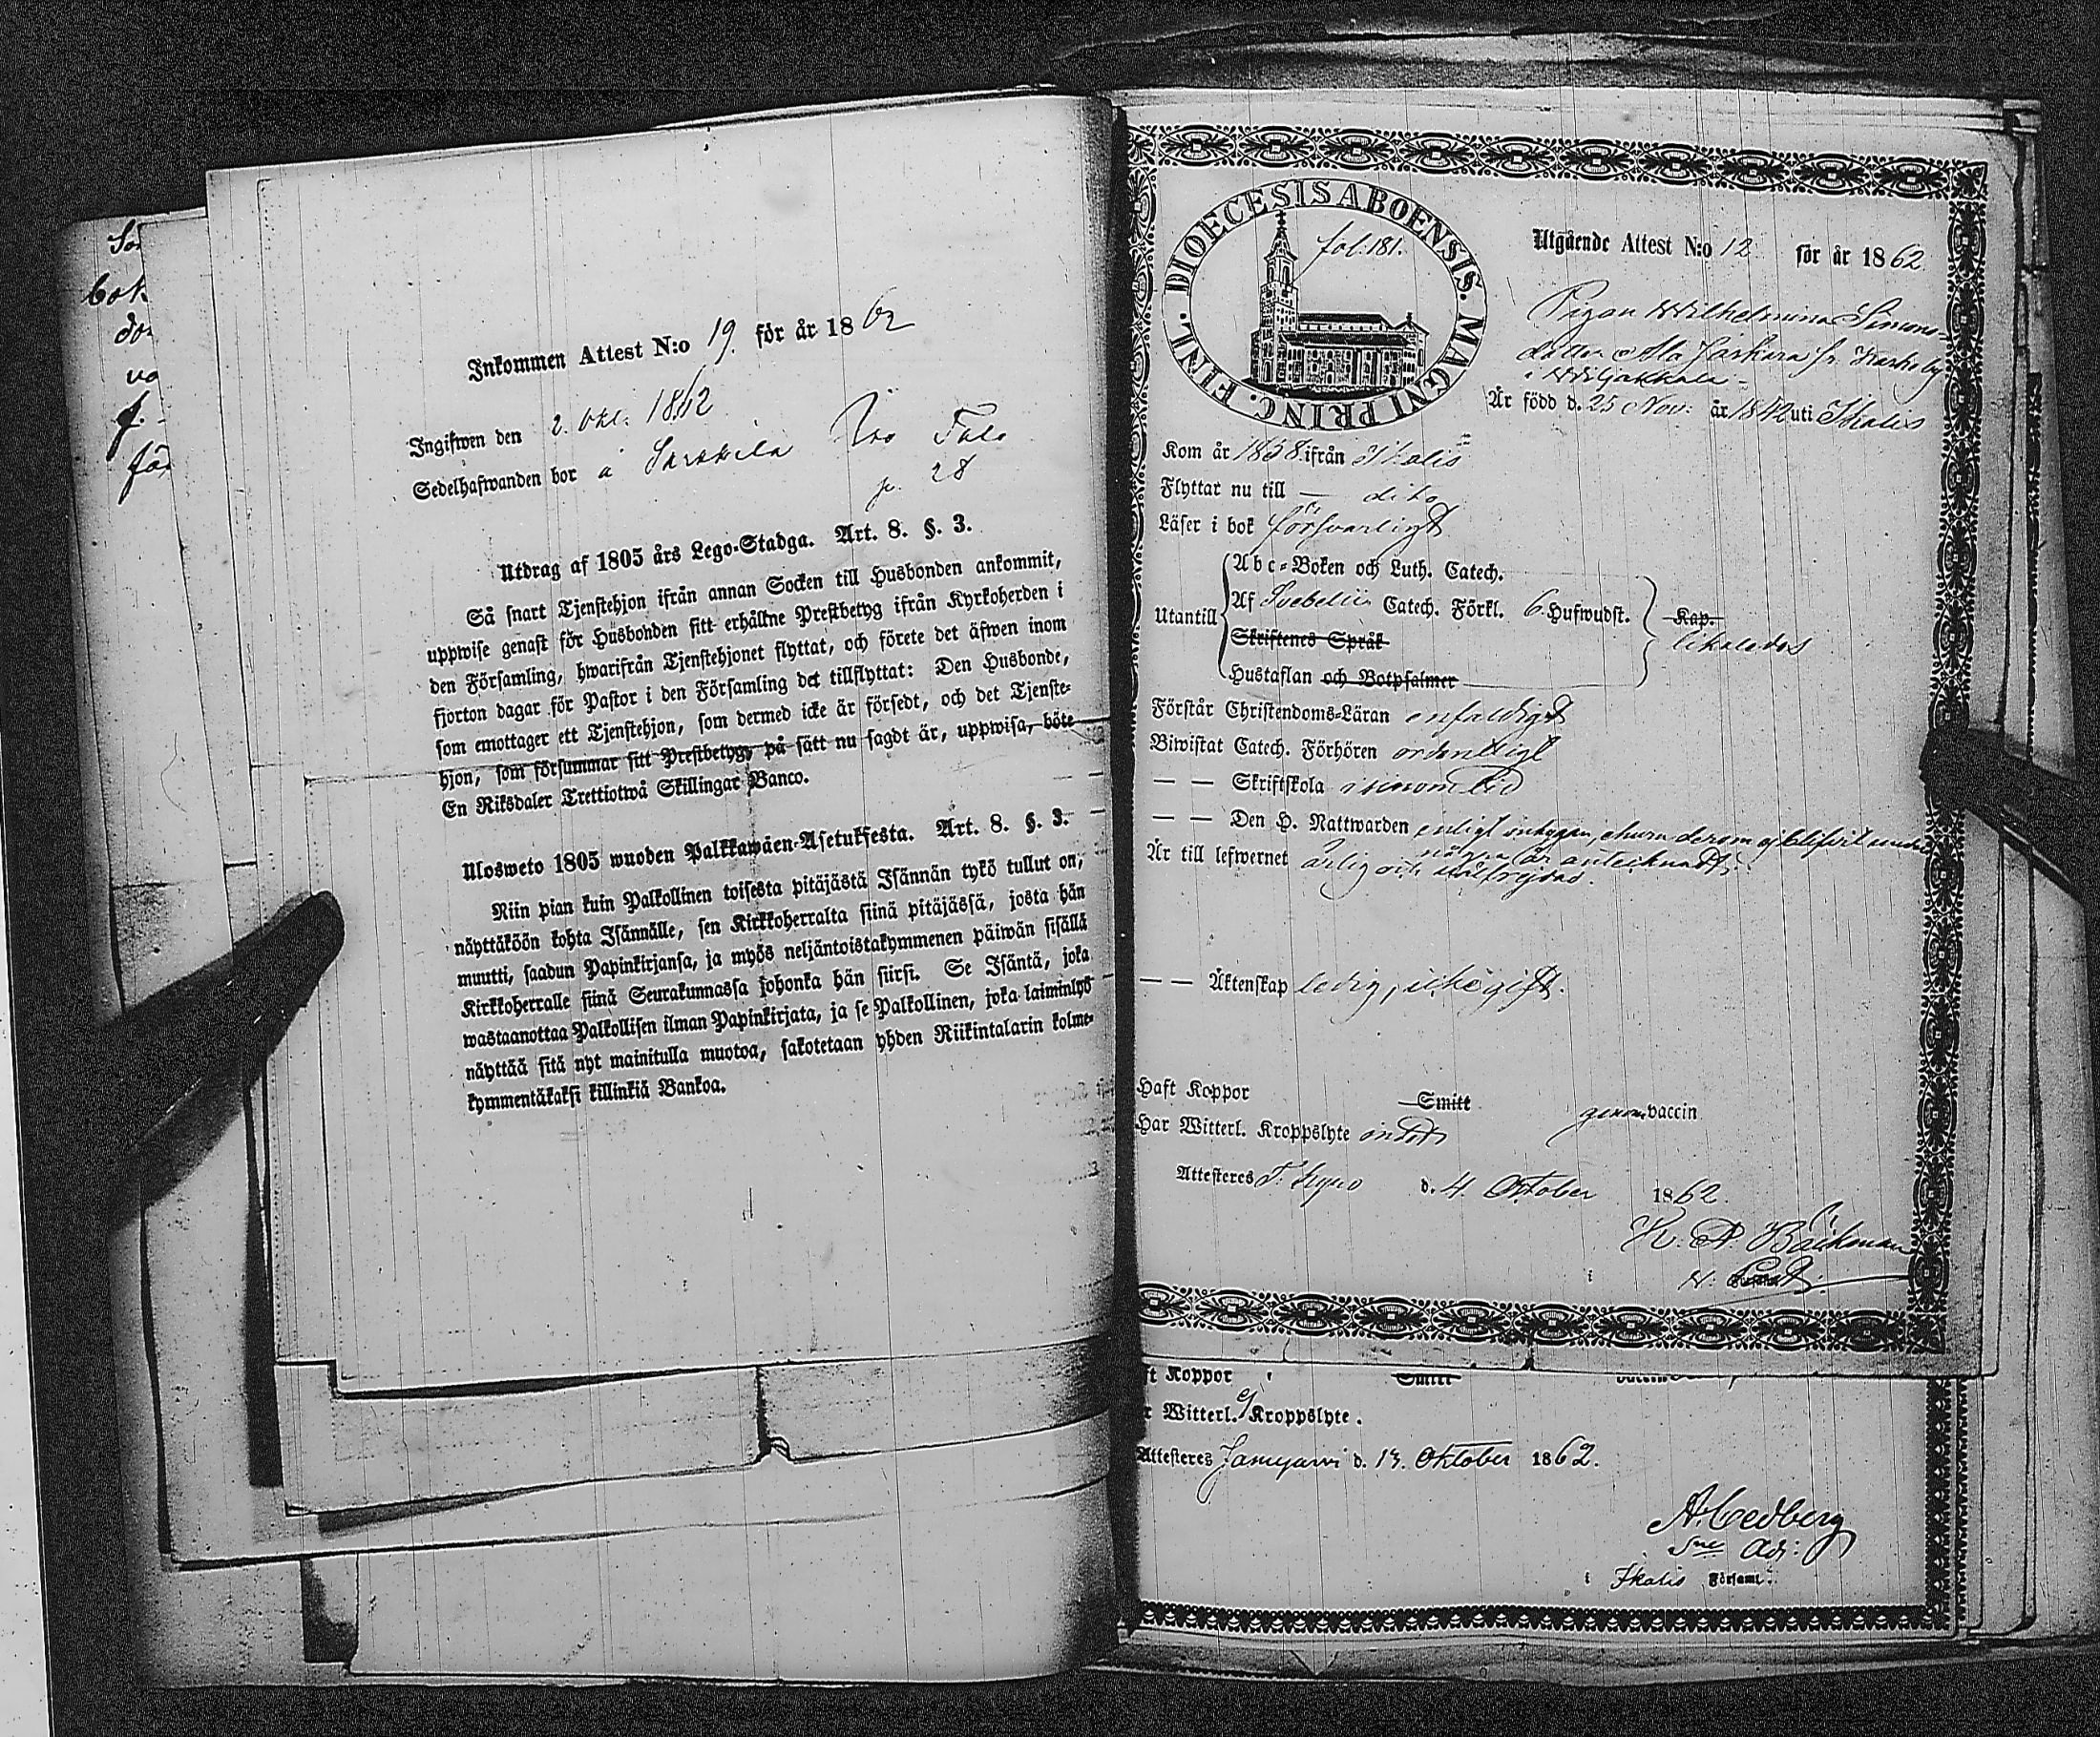 So
bok
dot
va
f.
för
Inkommen Attest N:o 19. för år 1862
Ingifwen den 2. Okt. 1862
Sedelhafwanden bor å Sarkkila
p. 28
Utdrag af 1805 års Lego-Stadga. Art. 8. §. 3.
Så snart Tjenstehjon ifrån annan Socken till Husbonden ankommit,
uppwise genast för Husbonden sitt erhållne Prestbetyg ifrån Kyrkoherden i
den Församling, hwarifrån Tjenstehjonet flyttat, och förete det äfwen inom
fjorton dagar för Pastor i den Församling det tillflyttat: Den Husbonde,
som emottager ett Tjenstehjon, som dermed icke är försedt, och det Tjenste-
hjon, som försummar sitt Prestbetyg, på sätt nu sagdt är, uppwisa, böte
En Riksdaler Trettiotwå Skillingar Banco.
Ulosweto 1805 wuoden Palkkawäen-Asetuksesta. Art. 8. §. 3.
Niin pian kuin Palkollinen toisesta pitäjästä Isännän tykö tullut on,
näyttäköön kohta Isännälle, sen Kirkkoherralta siinä pitäjässä, josta hän
muutti, saadun Papinkirjansa, ja myös neljäntoistakymmenen päiwän sisällä
Kirkkoherralle siinä Seurakunnassa johonka hän siirsi. Se Isäntä, joka
wastaanottaa Palkollisen ilman Papinkirjata, ja se Palkollinen, joka laiminlyö
näyttää sitä nyt mainitulla muotoa, sakotetaan yhden Riikintalarin kolme-
kymmentäkaksi killinkiä Bankoa.
DIOECESIS ABOENSIS. MAGNI PRINC. FINL.
fol. 181.
Utgående Attest N:o 12 för år 1862
Pigan Wilhelmina Simons-
dotter Ala Jaskara fr. by
i Wiljakkala
Är född d. 25 Nov: år 1842 uti Ikalis
Kom år 1858 ifrån Ikalis
Flyttar nu till — dito
Läser i bok försvarligt
Utantill
Abc-Boken och Luth. Catech.
Af Svebelii Catech. Förkl. 6 Hufwudst.
Skriftenes Språk
Hustaflan och Botpsalmer
Kap.
likaledes
Förstår Christendoms-Läran enfaldigt
Biwistat Catech. Förhören ordentligt
— — Skriftskola i sinom tid
— — Den H. Nattwarden enligt intygan, ehuru derom ej blifvit under
några år antecknadt.
Är till lefwernet ärlig och välfrejdad.
— — Äktenskap ledig, icke gift.
Haft Koppor Smitt genom vaccin
Har Witterl. Kroppslyte intet
Attesteres T. Kyro d. 4. Oktober 1862.
K. A. Bäckman
i
ft Koppor Smitt
r Witterl. Kroppslyte.
Attesteres Jämijärvi d. 13. Oktober 1862.
A. Cedberg
Sne Adj:
i Ikalis Församl: